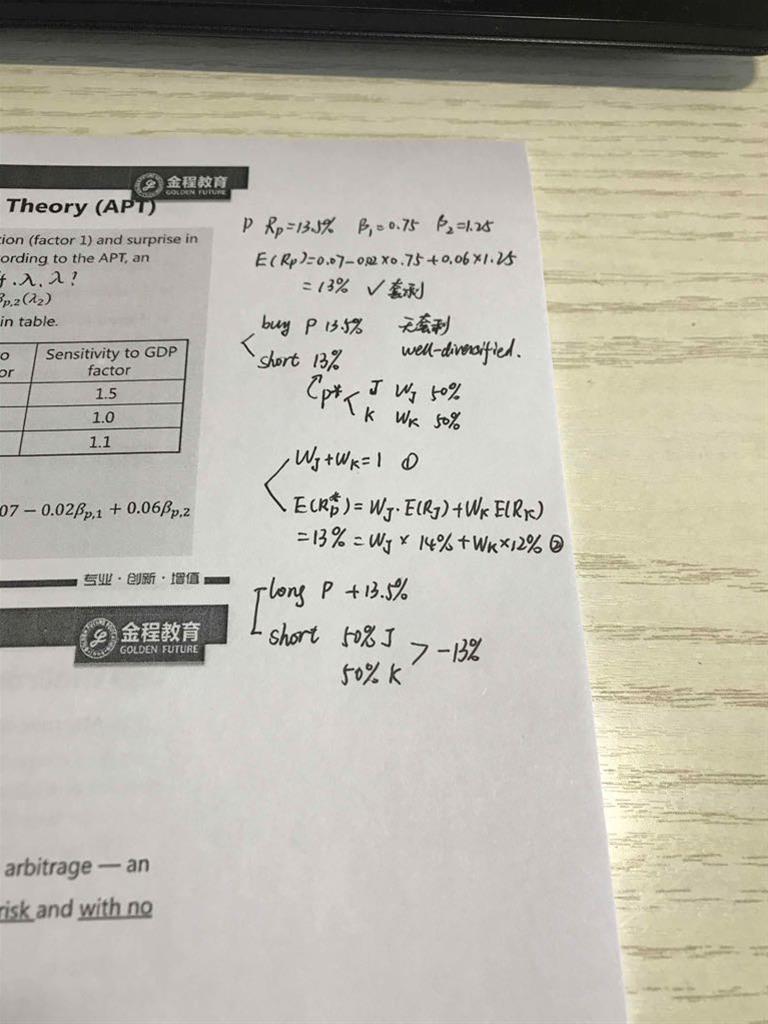 金程教育
GOLDEN FUTURE
Theory (APT)
tion (factor 1) and surprise in
ording to the APT, an
f . λ. λ ?
βp,2(λ2)
in table.
o
or
Sensitivity to GDP
factor
1.5
1.0
1.1
07 − 0.02βp,1 + 0.06βp,2
专业·创新·增值
金程教育
GOLDEN FUTURE
arbitrage — an
risk and with no
P Rp=13.5% β1=0.75 β2=1.25
E(Rp)=0.07-0.02×0.75+0.06×1.25
=13% ✓套利
buy P 13.5% 无套利
short 13% well-diversified.
p* J WJ 50%
K WK 50%
WJ+WK=1 ①
E(Rp*)=WJ·E(RJ)+WK E(RK)
=13%=WJ×14%+WK×12% ②
long P +13.5%
short 50% J
50% K > -13%